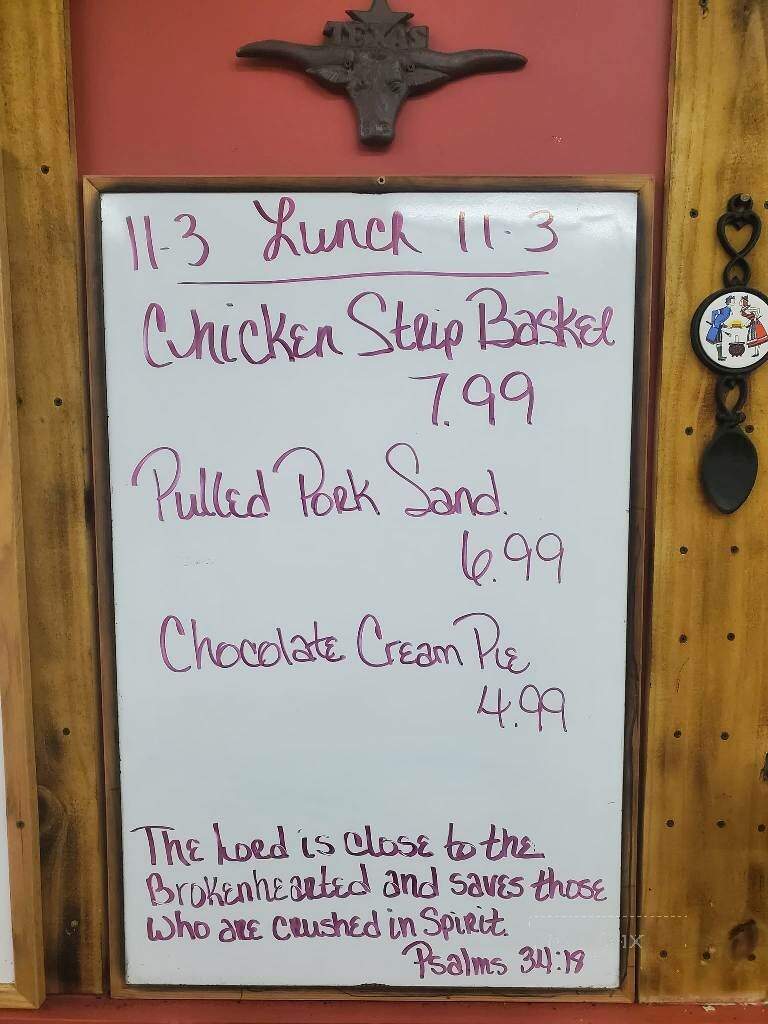 TEXAS
11-3 Lunch 11-3
Chicken Strip Basket
7.99
Pulled Pork Sand.
6.99
Chocolate Cream Pie
4.99
The Lord is close to the
Brokenhearted and saves those
who are crushed in Spirit.
Psalms 34:18